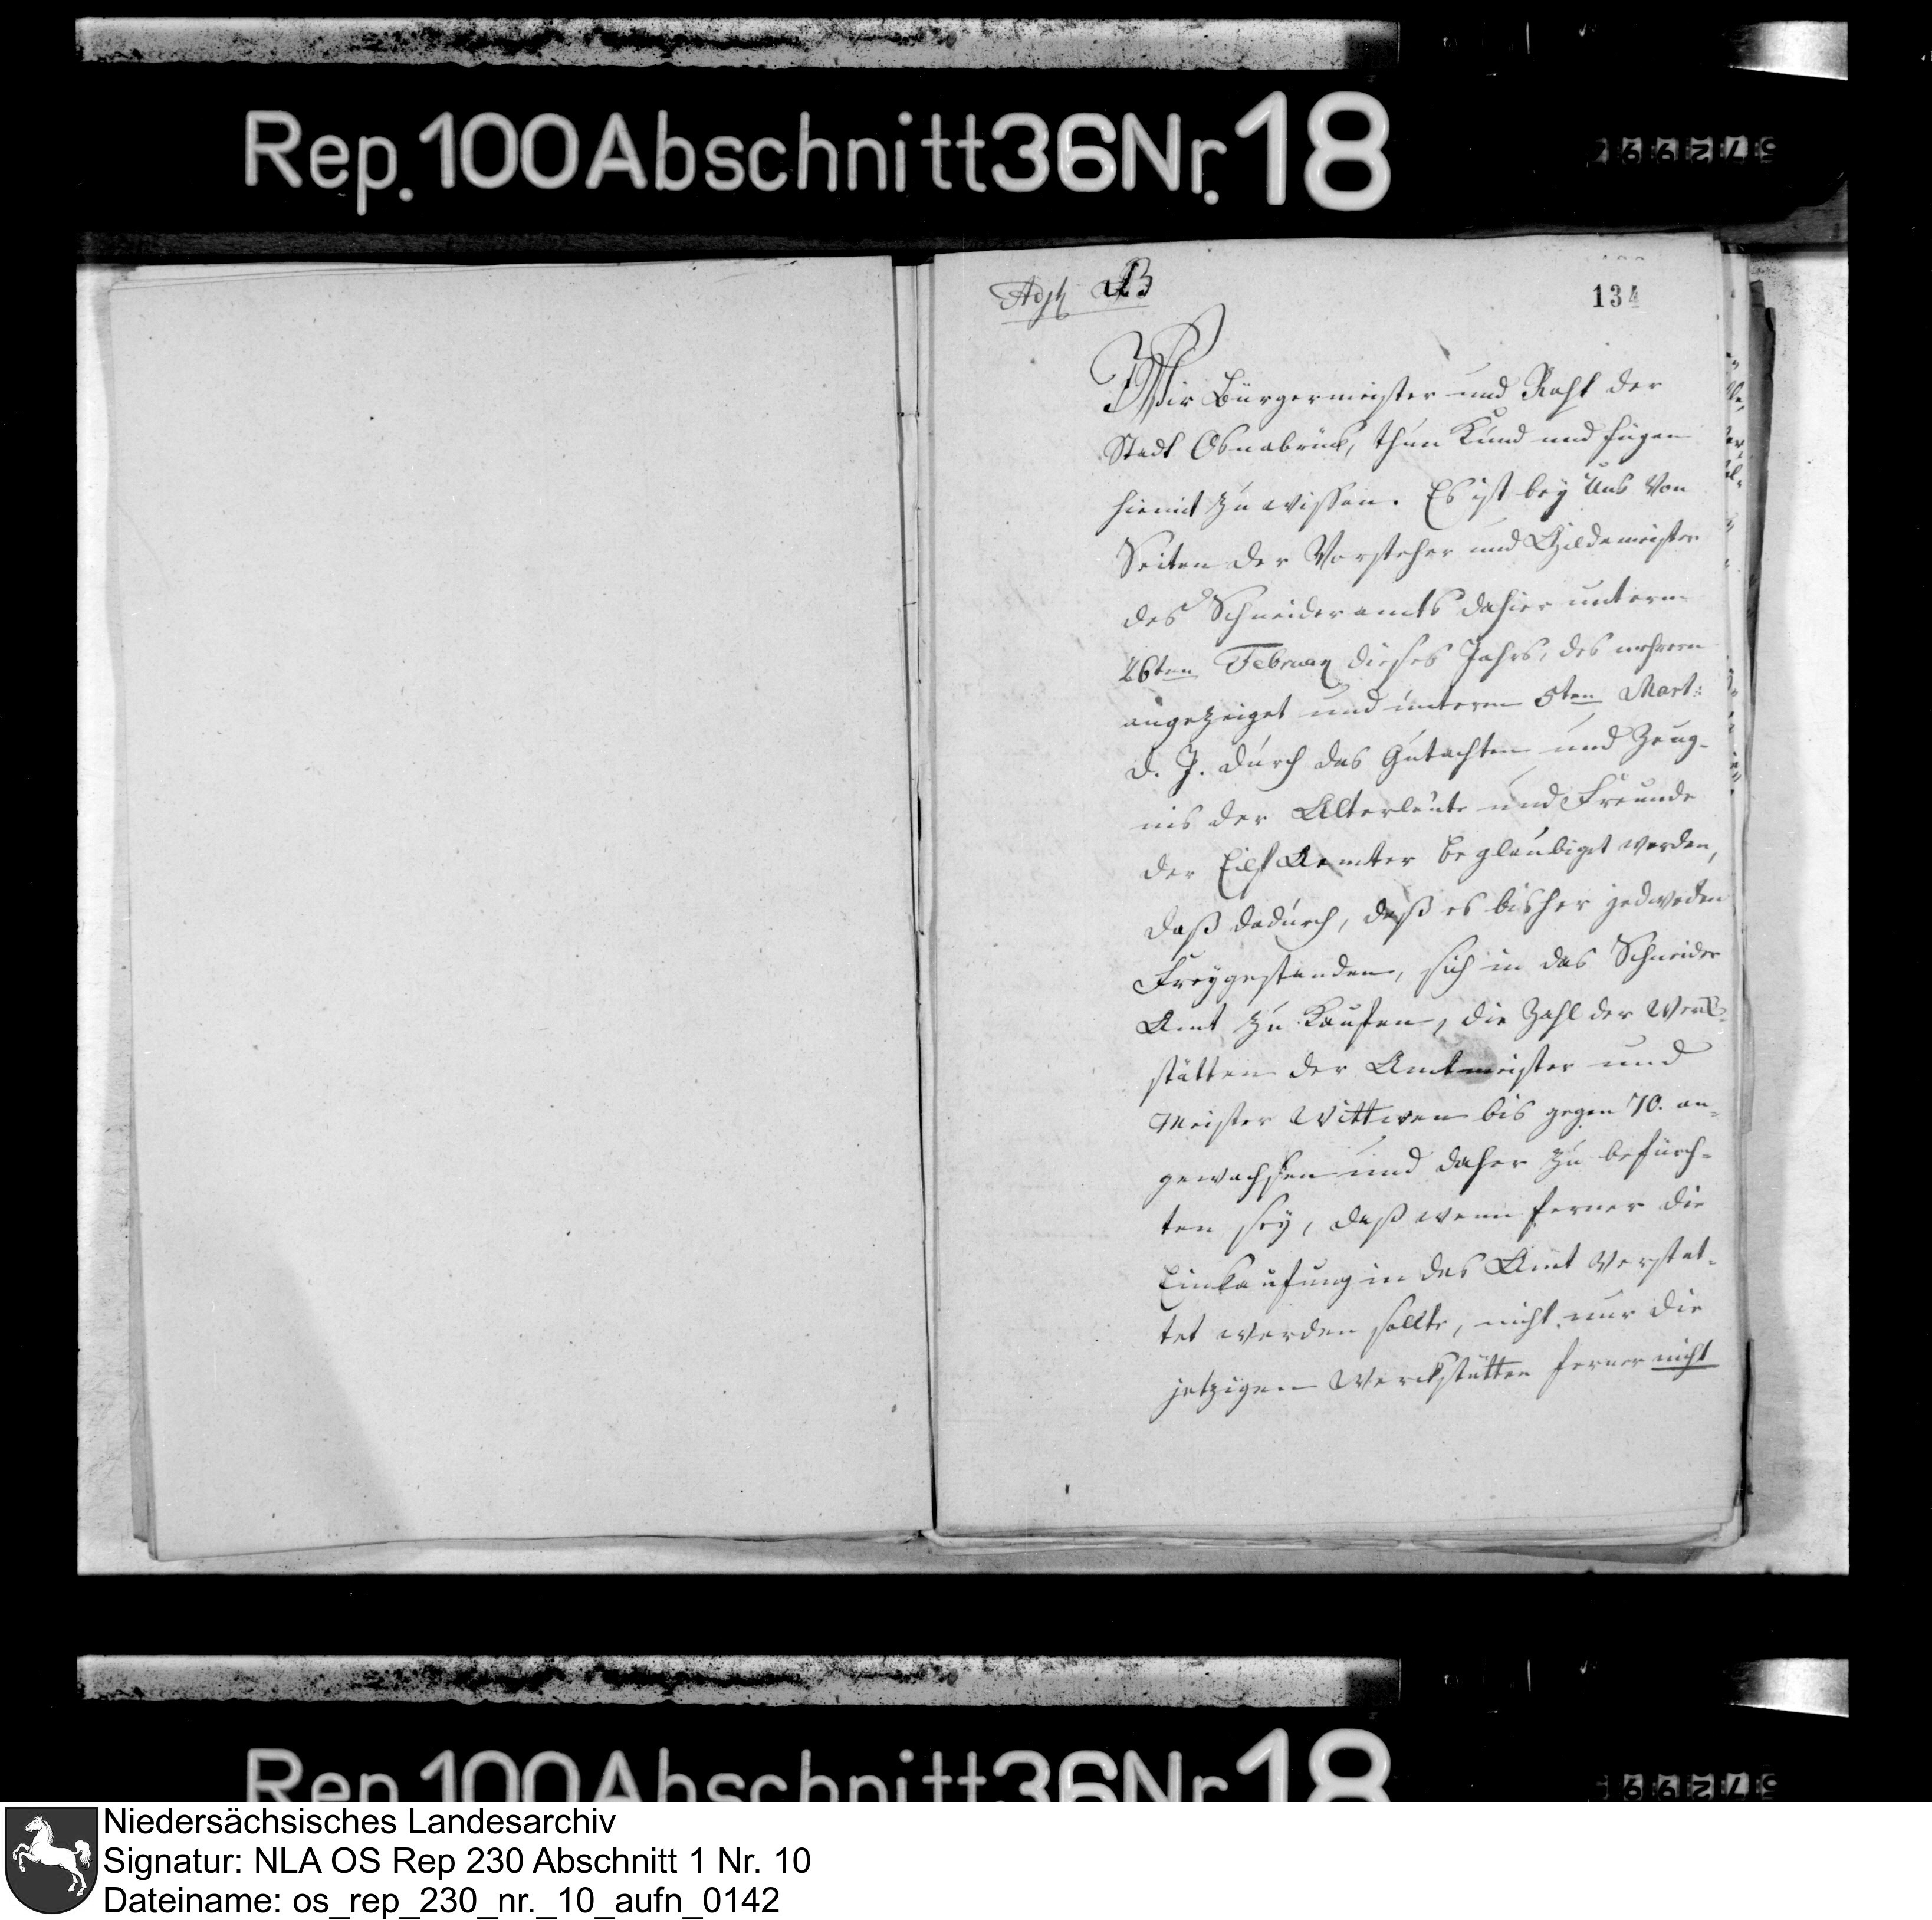 Rep. 100 Abschnitt 36 Nr. 18
B
134
Wir Bürgermeister und Raht der
Stadt Osnabrück, thun Kund und fügen
hiemit zu wissen. Es ist bey Uns von
Seiten der Vorsteher und Gildemeister
des Schneideramts dahier unterm
26ten February dieses Jahrs, des mehrern
angezeiget und unterm 5ten Mart:
d. J. durch das Gutachten und Zeug-
nis der Alterleute und Freunde
der Eilf Aemter beglaubiget worden,
daß dadurch, daß es bisher jedweden
Freygestanden, sich in das Schneider
Amt zu Kaufen, die Zahl der Werk-
stätten der Amtmeister und
Meister Wittwen bis gegen 70. an-
gewachsen und daher zu befürch-
ten sey, daß wenn ferner die
Einkaufung in das Amt verstat-
tet werden sollte, nicht nur die
jetzigen Werckstätten ferner nicht
Rep. 100 Abschnitt 36 Nr. 18
Niedersächsisches Landesarchiv
Signatur: NLA OS Rep 230 Abschnitt 1 Nr. 10
Dateiname: os_rep_230_nr._10_aufn_0142